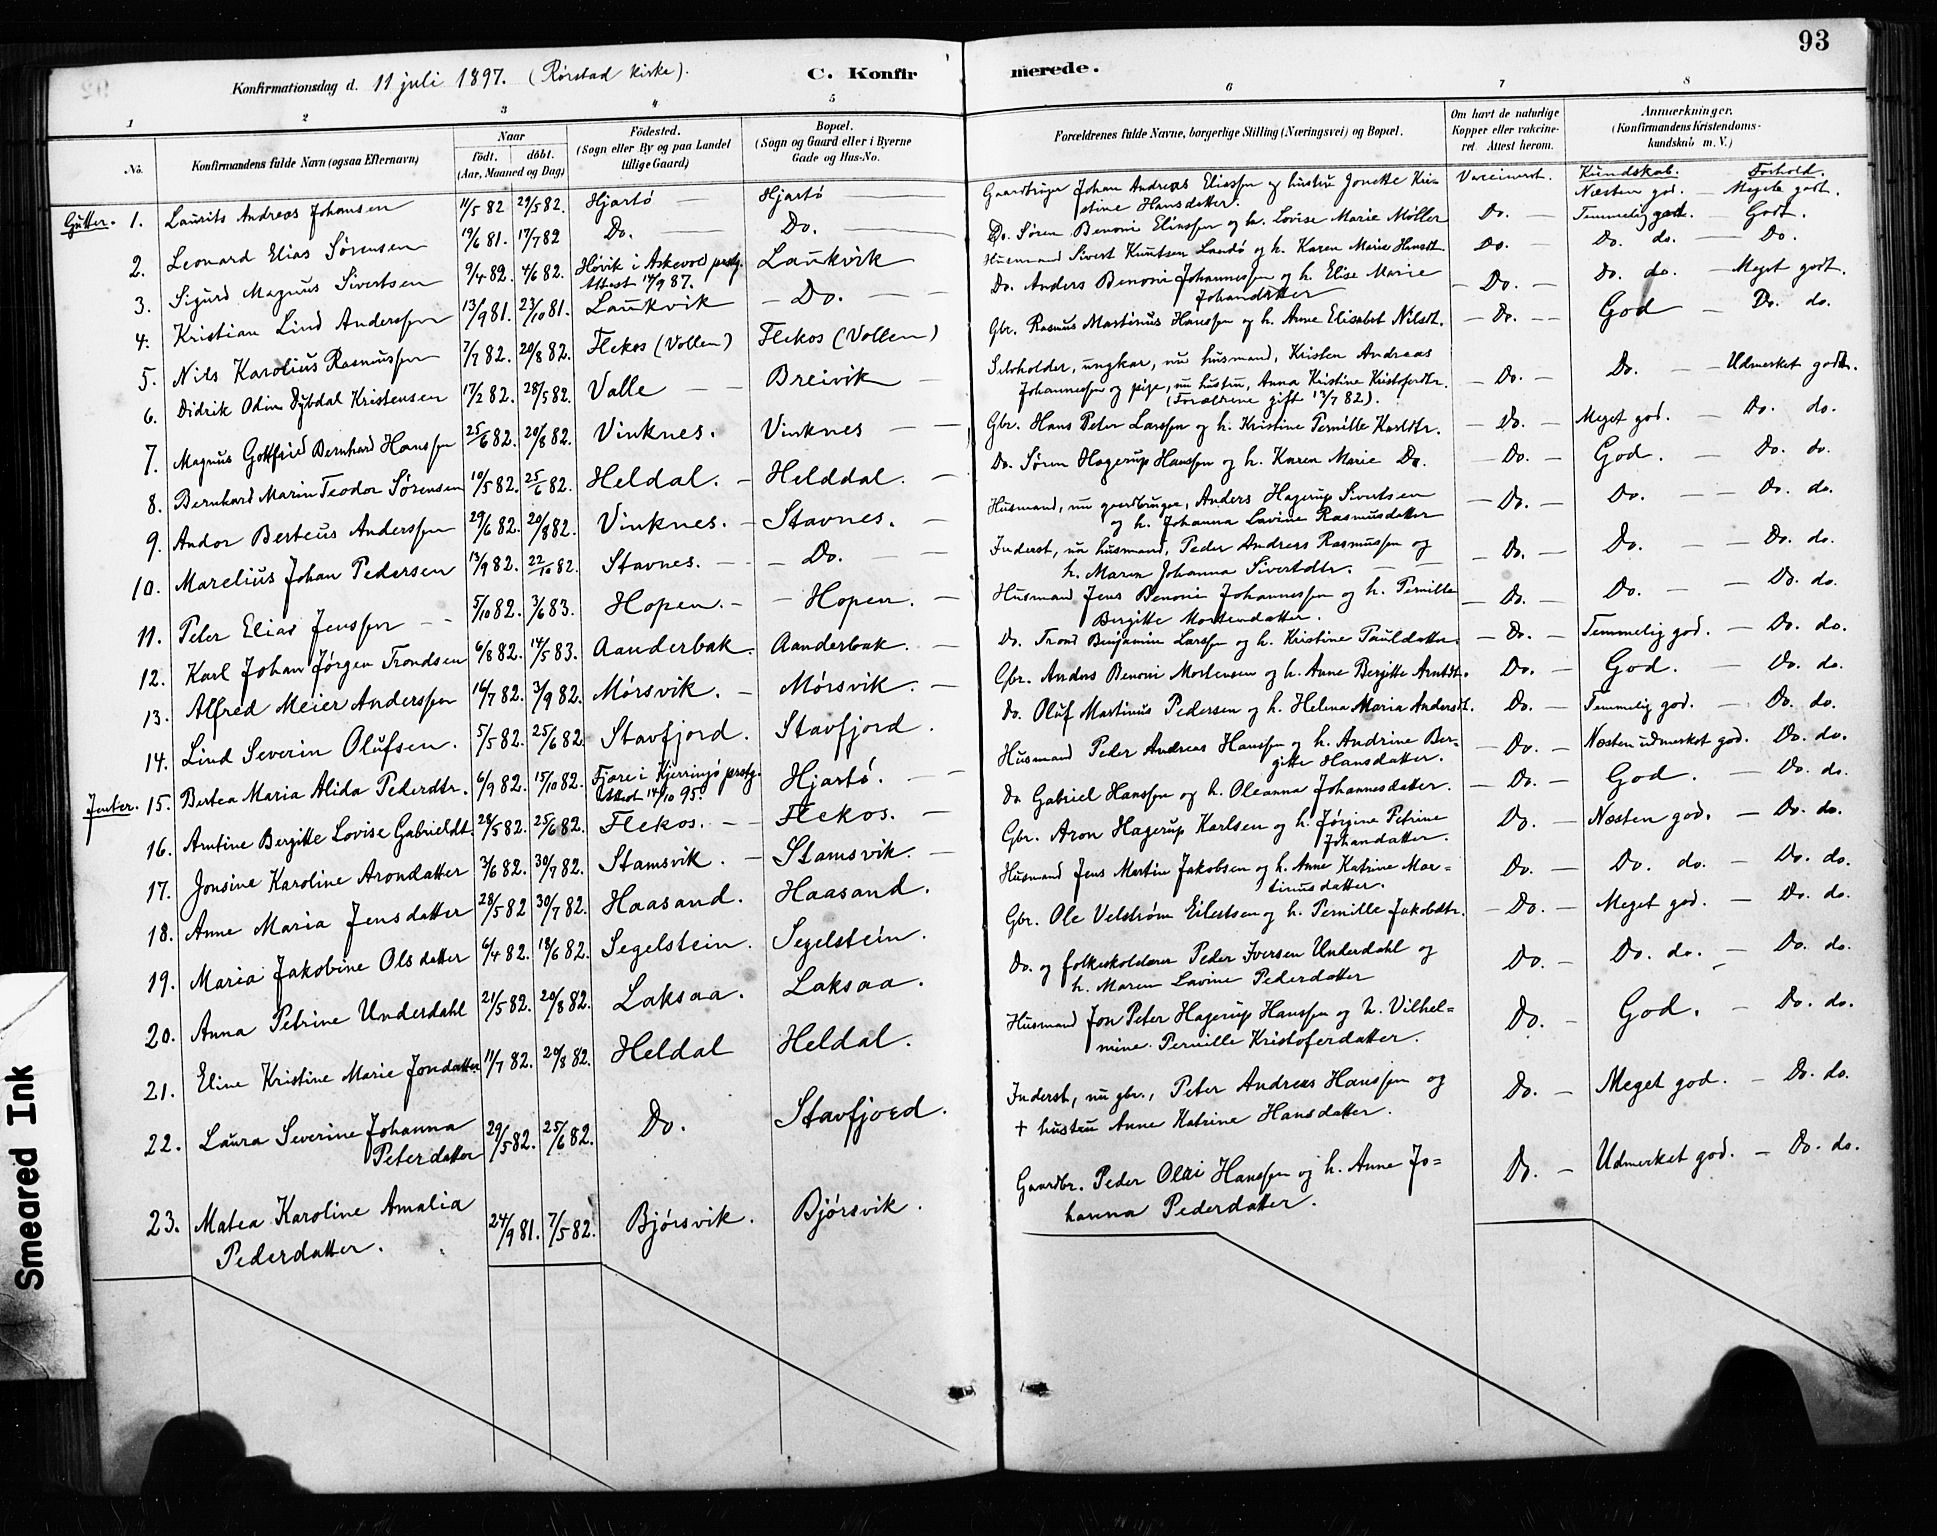 93
Konfirmationsdag d. 11 juli 1897. (Rørstad kirke).
C. Konfirmerede.
1 2 3 4 5 6 7 8
No.
Konfirmandens fulde Navn (ogsaa Efternavn)
Naar
født. døbt.
(Aar, Maaned og Dag)
Fødested.
(Sogn eller By og paa Landet
tillige Gaard)
Bopæl.
(Sogn og Gaard eller i Byerne
Gade og Hus-No.
Forældrenes fulde Navne, borgerlige Stilling (Næringsvei) og Bopæl.
Om havt de naturlige
Kopper eller vakcineret. Attest herom.
Anmærkninger.
(Konfirmandens Kristendomskundskab m. V.)
Kundskab. Forhold.
Gutter. 1. Laurits Andreas Johansen 11/5 82 29/5 82. Hjartö Hjartö Gaardbruger Johan Andreas Eliassen og hustru Jonette Kristine Hansdatter. Vaccineret. Næsten god. Meget godt.
2. Leonard Elias Sørensen 19/6 81. 17/7 82 Do. Do. Do. Søren Benoni Eliassen og h. Lovise Marie Møller Do. Temmelig god. Godt.
3. Sigurd Magnus Sivertsen 9/4 82. 4/6 82. Høvik i Askevold prstg. Attest 14/9 87. Laukvik Husmand Sivert Knutsen Landö og h. Karen Marie Hansdt. Do. Do. do. Do.
4. Kristian Lind Anderssen 13/9 81. 23/10 81. Laukvik Do. Do. Anders Benoni Johannessen og h. Elise Marie Johansdatter Do. Do. do. Meget godt.
5. Nils Karolius Rasmussen 7/7 82. 20/8 82. Flekos (Vollen) Flekos (Vollen) Gbr. Rasmus Martinus Hanssen og h. Anne Elisabet Nilsdt. Do. God Do. do.
6. Didrik Odin Dybdal Kristensen 17/2 82. 28/5 82. Valle Breivik Selvholder, ungkar, nu husmand, Kristen Andreas
Johannessen og pige, nu hustru, Anna Kristine Kristoferdtr. (Forældrene gift 13/7 82). Do. Do. Udmerket godt.
7. Magnus Gottfried Bernhard Hanssen 25/6 82. 20/8 82. Vinknes. Vinknes Gbr. Hans Peter Larssen og h. Kristine Pernille Karldtr. Do. Meget god. Do. do.
8. Bernhard Marin Teodor Sørensen 10/5 82. 25/6 82. Heldal. Helddal. Do. Søren Hagerup Hanssen og h. Karen Marie Do. Do. God. Do. do.
9. Andor Berteus Anderssen 29/6 82. 20/8 82. Vinknes. Stavnes. Husmand, nu gaardbruger, Anders Hagerup Sivertsen
og h. Johanna Lavine Rasmusdatter Do. Do. Do. do.
10. Marelius Johan Pedersen 13/9 82. 22/10 82. Stavnes. Do. Inderst, nu husmand, Peder Andreas Rasmussen og
h. Maren Johanna Sivertdtr. Do. Do. Do. do.
11. Peter Elias Jenssen 5/10 82. 3/6 83. Hopen. Hopen. Husmand Jens Benoni Johannessen og h. Pernille
Bergitte Mortensdatter. Do. Do. Do. do.
12. Karl Johan Jørgen Trondsen 6/8 82. 14/5 83. Aanderbak. Aanderbak. Do. Trond Benjamin Larssen og h. Kristine Pauldatter. Do. Temmelig god. Do. do.
13. Alfred Meier Anderssen 16/7 82. 3/9 82. Mørsvik. Mørsvik. Gbr. Anders Benoni Mortensen og h. Anne Bergitte Arntdt. Do. God. Do. do.
14. Lind Severin Olufsen. 5/5 82. 25/6 82. Stavfjord. Stavfjord. Do. Oluf Martinus Pedersen og h. Helena Maria Andersdt. Do. Temmelig god. Do. do.
Jenter. 15. Bertea Maria Alida Pederdtr. 6/9 82. 15/10 82. Fjære i Kjerringö prstg. Attest 14/10 95. Hjartö. Husmand Peder Andreas Hanssen og h. Andrine Bergitte Hansdatter. Do. Næsten udmerket god. Do. do.
16. Arntine Bergitte Lovise Gabrieldt. 28/5 82. 25/6 82. Flekos. Flekos. Do. Gabriel Hanssen og h. Oleanna Johannesdatter. Do. God. Do. do.
17. Jonsine Karoline Arondatter 3/6 82. 30/7 82. Stamsvik. Stamsvik. Gbr. Aron Hagerup Karlsen og h. Jørgine Petrine Johandatter. Do. Næsten god. Do. do.
18. Anne Maria Jensdatter 28/5 82 30/7 82. Haasand. Haasand. Husmand Jens Martin Jakobsen og h. Anne Katrine Martinusdatter. Do. Do. do. Do. do.
19. Maria Jakobine Olsdatter 6/4 82. 18/6 82. Segelstein. Segelstein. Gbr. Ole Velstrøm Eilertsen og h. Pernille Jakobdtr. Do. Meget god. Do. do.
20. Anna Petrine Underdahl 21/5 82. 20/8 82. Laksaa. Laksaa. Do. og folkeskolelærer Peder Iversen Underdahl og
h. Maren Lavine Pederdatter Do. Do. do. Do. do.
21. Eline Kristine Marie Jondatter 11/7 82. 20/8 82. Heldal Heldal. Husmand Jon Peter Hagerup Hanssen og h. Vilhelmine Pernille Kristoferdatter. Do. God. Do. do.
22. Laura Severine Johanna
Peterdatter 29/5 82. 25/6 82. Do. Stavfjord. Inderst, nu gbr., Peter Andreas Hanssen og
† hustru Anne Katrine Hansdatter. Do. Meget god. Do. do.
23. Matea Karoline Amalia
Pederdatter. 24/9 81. 7/5 82. Bjørsvik. Bjørsvik. Gaardbr. Peder Olai Hanssen og h. Anne Johanna Pederdatter. Do. Udmerket god. Do. do.
Smeared Ink